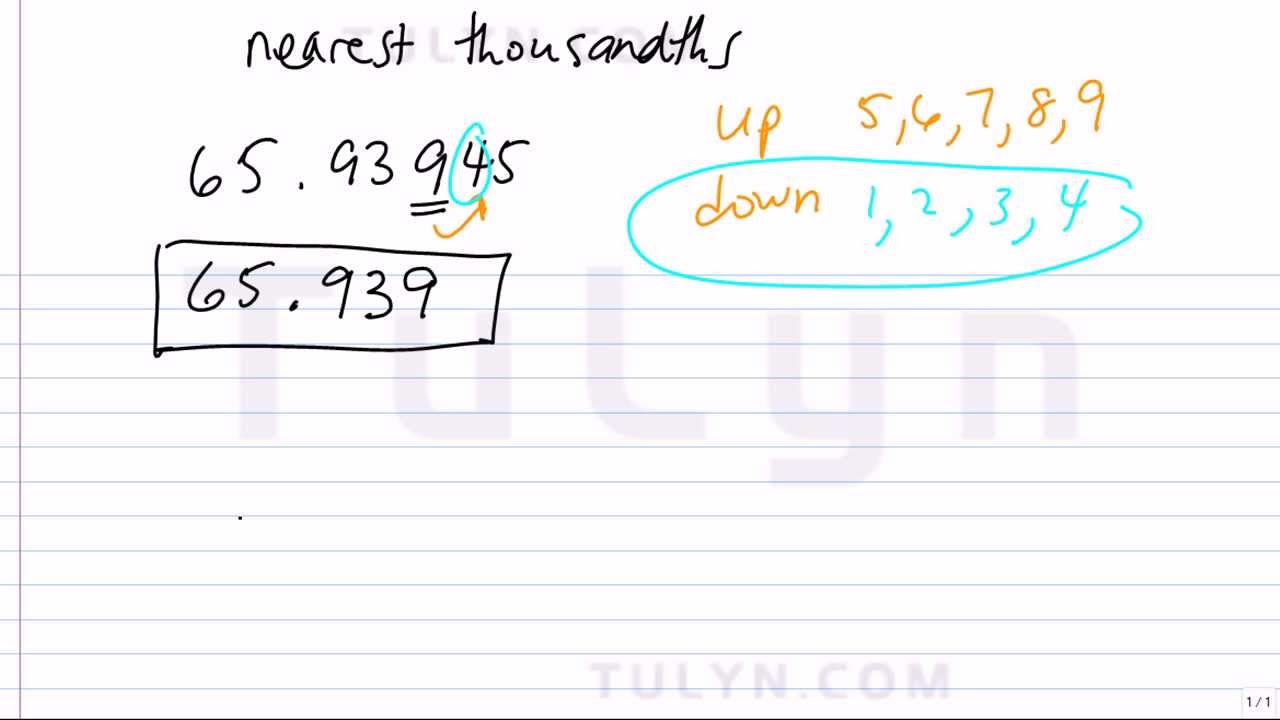 nearest thousandths
TULYN.COM
up 5,6,7,8,9
65.93945
down 1,2,3,4
65.939
TuLyn
TULYN.COM
1/1